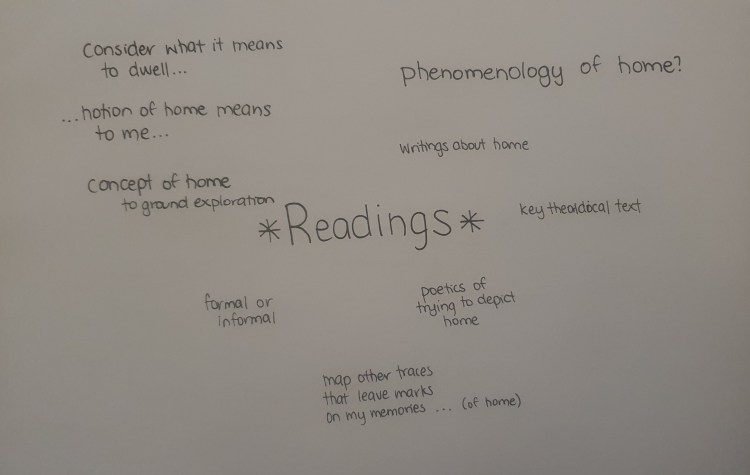 consider what it means
to dwell...
...notion of home means
to me...
concept of home
to ground exploration
phenomenology of home?
writings about home
*Readings*
key text
formal or
informal
poetics of
trying to depict
home
map other traces
that leave marks
on my memories ... (of home)